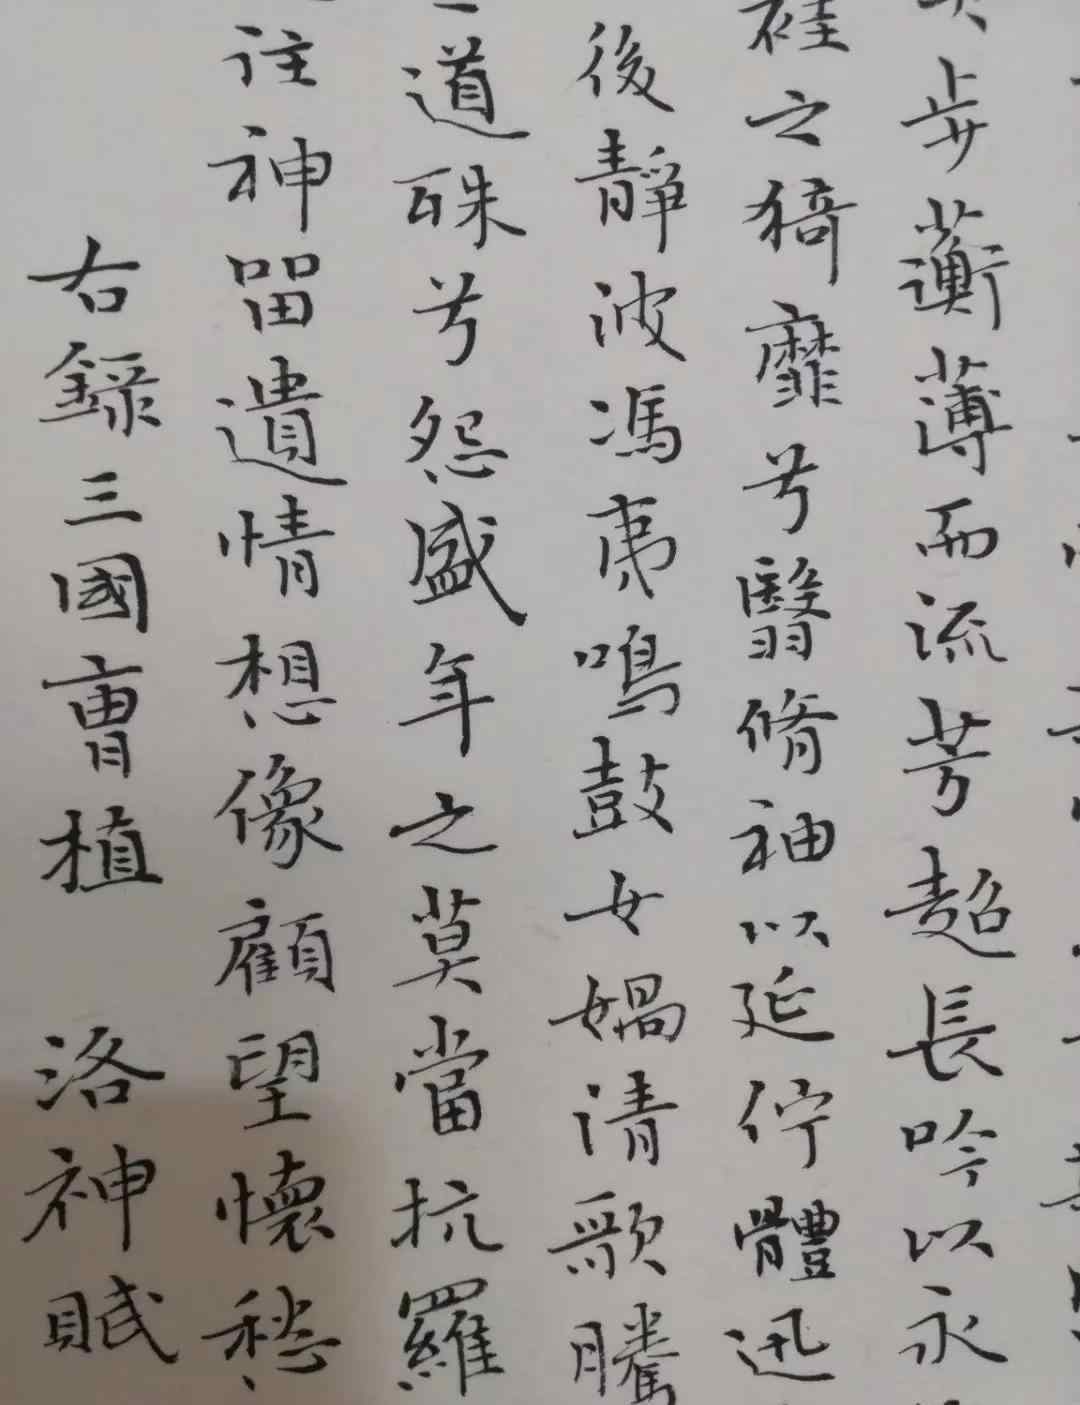 步蘅薄而流芳超長吟以永
袿之猗靡兮翳脩袖以延佇體迅
後靜波馮夷鳴鼓女媧清歌騰
道殊兮怨盛年之莫當抗羅
往神留遺情想像顧望懷愁
右錄三國曹植 洛神賦